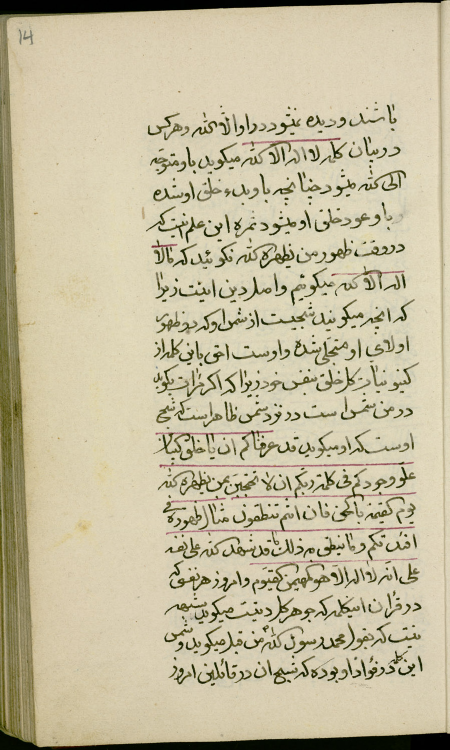 14
باشند و دیده نمیشود در او الا الله و هر کس
در بیان کلمه لا اله الا الله میکوید باو متوجه
الی الله میشود چنانچه باو بدء خلق او شده
و باو عود خلق او میشود ثمره این علم اینست که
در وقت ظهور من یظهره الله نکوئید که ما لا
اله الا الله میکوئیم و اصل دین اینست زیرا
که انچه میکوئید شبحیست از شمس او که در ظهور
اولای او متجلی شده و اوست احق باین کلمه از
کینونیات کل خلق بنفس خود زیرا که اکر مرات بکوید
در من شمس است در نزد شمس ظاهر است که شبح
اوست که او میکوید قد عرفناکم ان یا خلق البیان
علو وجودکم فی کلمة ربکم ان لا تحتجبن بمن یظهره الله
یوم القیمة بالحق فان انتم تنطقون مثال ظهوره فی
افئدتکم و ما ینطق به ذلک ما قد شهد الله علی نفسه
علی انه لا اله الا هو المهیمن القیوم و امروز هر نفسی که
در قران این کلمه که جوهر کل دینست میکوید شبهه
نیست که بقول محمد رسول الله من قبل میکوید و شمس
این کلمه در فؤاد او بوده که شبح ان در قائلین امروز